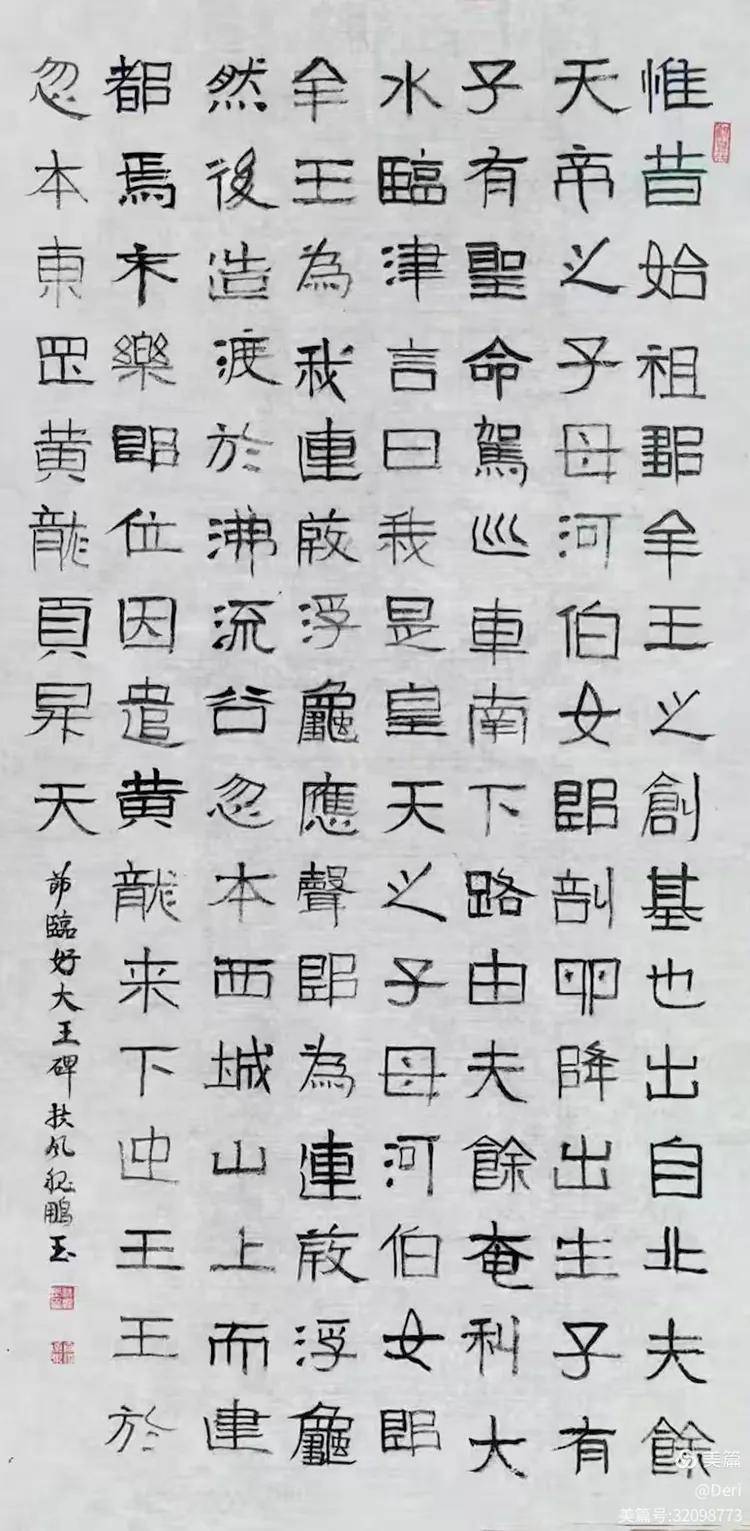 惟昔始祖鄒牟王之創基也出自北夫餘
天帝之子母河伯女郎剖卵降出生子有
子有聖命駕巡車南下路由夫餘奄利大
水臨津言曰我是皇天之子母河伯女郎
牟王為我連葭浮龜應聲即為連葭浮龜
然後造渡於沸流谷忽本西城山上而建
都焉未樂即位因遣黄龍来下迎王王於
忽本東罡黄龍頁昇天
節臨好大王碑扶风鵬玉
美篇
@Deri
美篇号:32098773